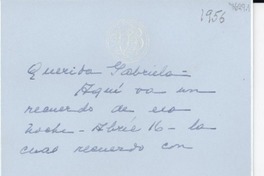 1956
Querida Gabriela=
Aquí va un
recuerdo de esa
noche - Abril 16 - la
cual recuerdo con